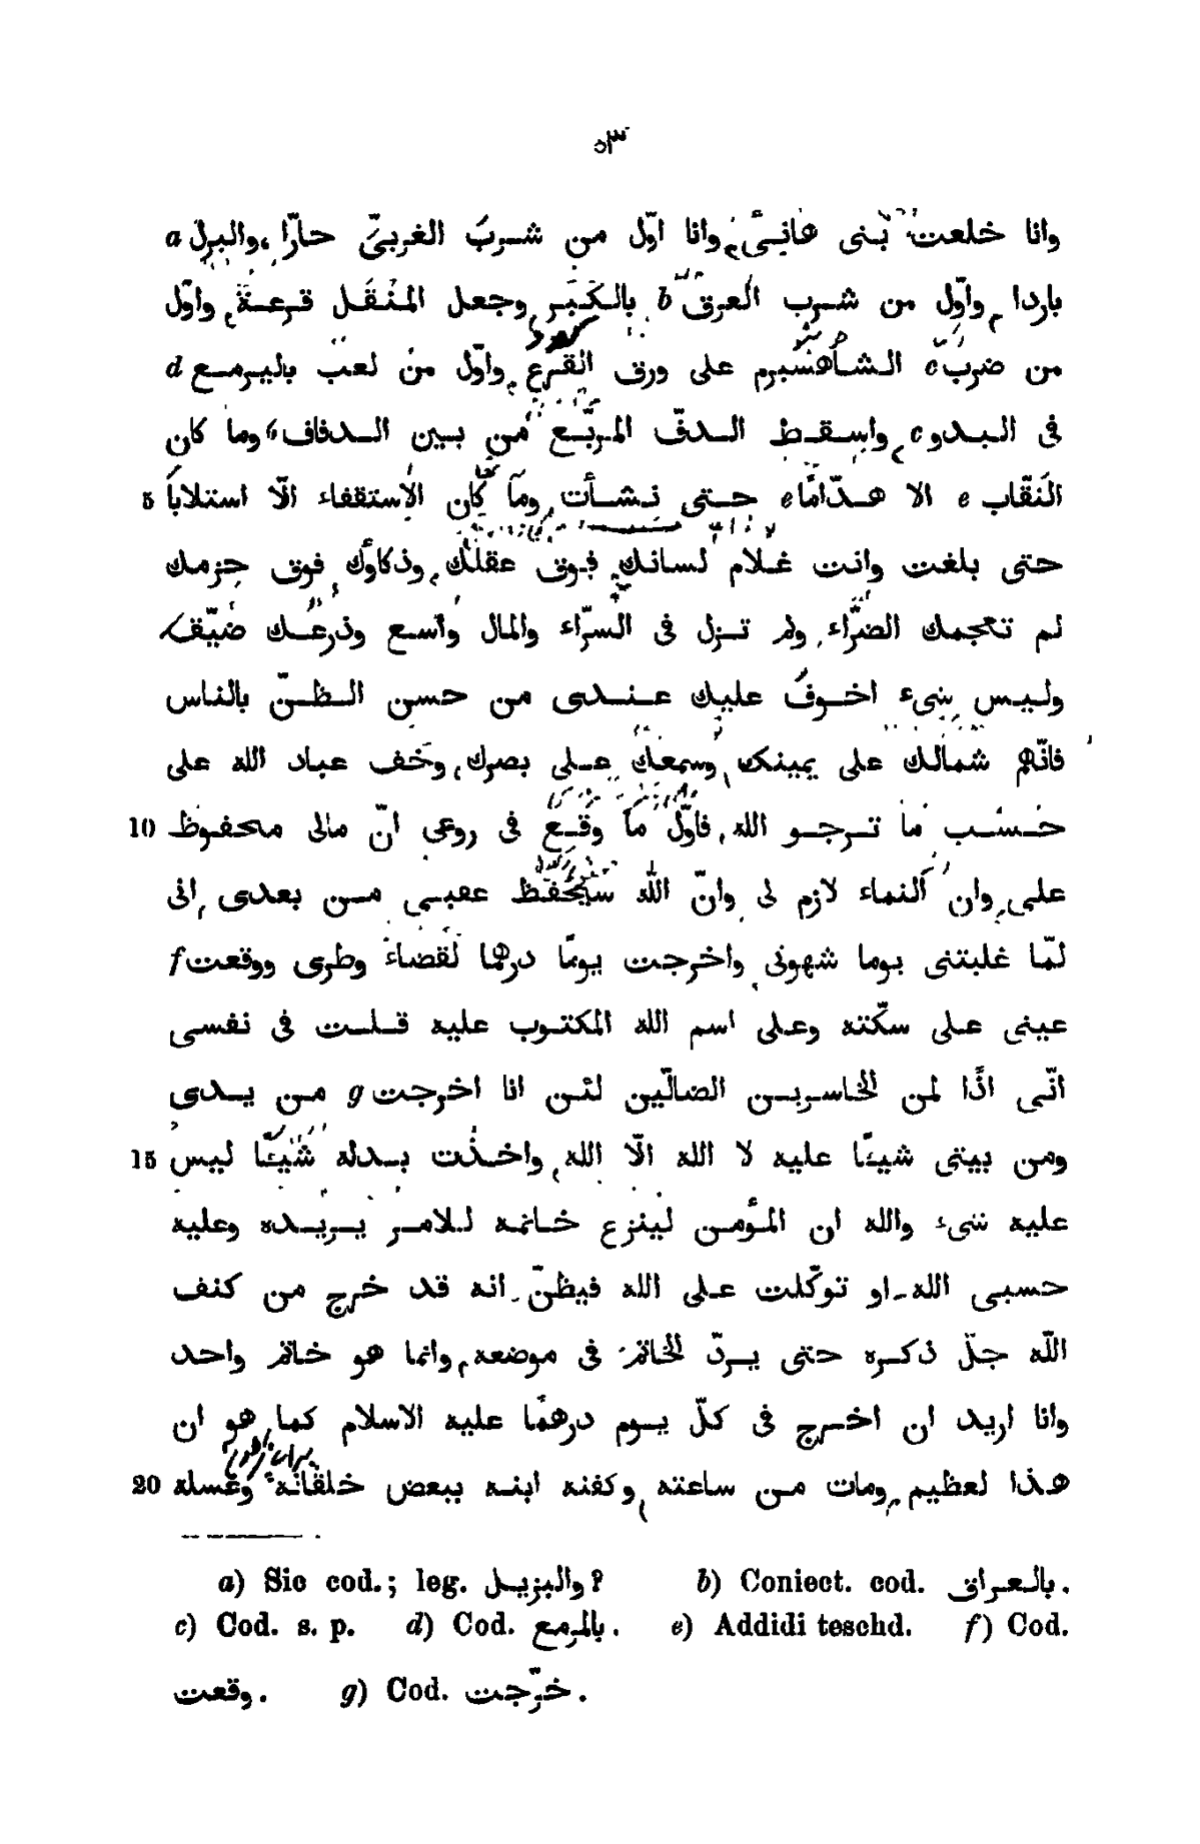 ٥٣
وانا خلعت بنى هانئ وانا اوّل من شرب الغربىّ حارّا والبزل a
باردا واوّل من شرب العرق b بالكبر وجعل المنقل قرعة واوّل
من ضرب c الشاهسبرم على ورق القرع واوّل من لعب باليرمع d
فى البدو c واسقط الدفّ المربّع من بين الدفاف وما كان
5 النقّاب e الا هدّامًا e حتى نشأت وما كان الاستقفاء الّا استلابا
حتى بلغت وانت غلام لسانك فوق عقلك وذكاؤك فوق حزمك
لم تعجمك الضرّاء ولم تزل فى السرّاء والمال واسع وذرعك ضيّق
وليس شىء اخوف عليك عندى من حسن الظنّ بالناس
فانّهم شمالك على يمينك وسمعك على بصرك وخف عباد الله على
10 حسب ما ترجو الله فاوّل ما وقع فى روعى انّ مالى محفوظ
على وان النماء لازم لى وانّ الله سيحفظ عقبى من بعدى انى
لمّا غلبتنى يوما شهوتى واخرجت يومًا درهما لقضاء وطرى ووقعت f
عينى على سكّته وعلى اسم الله المكتوب عليه قلت فى نفسى
انّى اذًا لمن الخاسرين الضالّين لئن انا اخرجت g من يدى
15 ومن بيتى شيئًا عليه لا الله الّا الله واخذت بدله شيئًا ليس
عليه شىء والله ان المؤمن لينزع خاتمه للامر يريده وعليه
حسبى الله او توكّلت على الله فيظنّ انه قد خرج من كنف
اللّه جلّ ذكره حتى يردّ الخاتم فى موضعه وانما هو خاتم واحد
وانا اريد ان اخرج فى كلّ يوم درهمًا عليه الاسلام كما هو ان
20 هذا لعظيم ومات من ساعته وكفنه ابنه ببعض خلقانه وغسله
a) Sic cod.; leg. والبزيل? b) Coniect. cod. بالعراق.
c) Cod. s. p. d) Cod. بالمرمع. e) Addidi teschd. f) Cod.
وقعت. g) Cod. خرّجت.